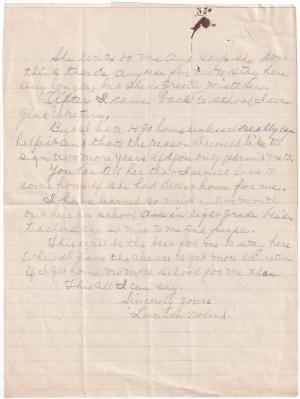 She wrote to me and says she don't
think there's any use for me to stay here
any longer, but she is greatly mistaken.
After I came back to school I was
glad to return,
But I hate to go home unless I really can
help it and that's the reason I would like to
sign two more years if you only permit me to
You can tell her that I would love to
come home if she had a home for me.
I have learned so much in two month
out here in school am in eight grade
teachers are so nice to me and people.
This will be the best for me to stay here
while I have the chance to get more education
if I get home no more school for me then.
This all I can say.
Sincerely yours
Lucinda Noland.